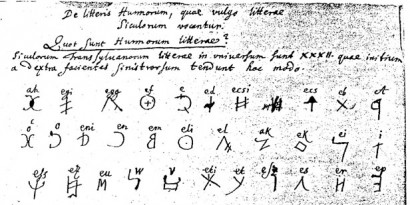 De litteris Hunnorum, quae vulgo litterae
Siculorum vocantur.
Quot sunt Hunnorum litterae?
Siculorum Transylvanorum litterae in universum sunt XXXII. quae initium
a dextra facientes sinistrorsum tendunt hoc modo.
ah egi egg ef e ed ecsi ecs eb a
ö o eni en em eli el ak ek ei i
ess eż eu w v eti et es er ep